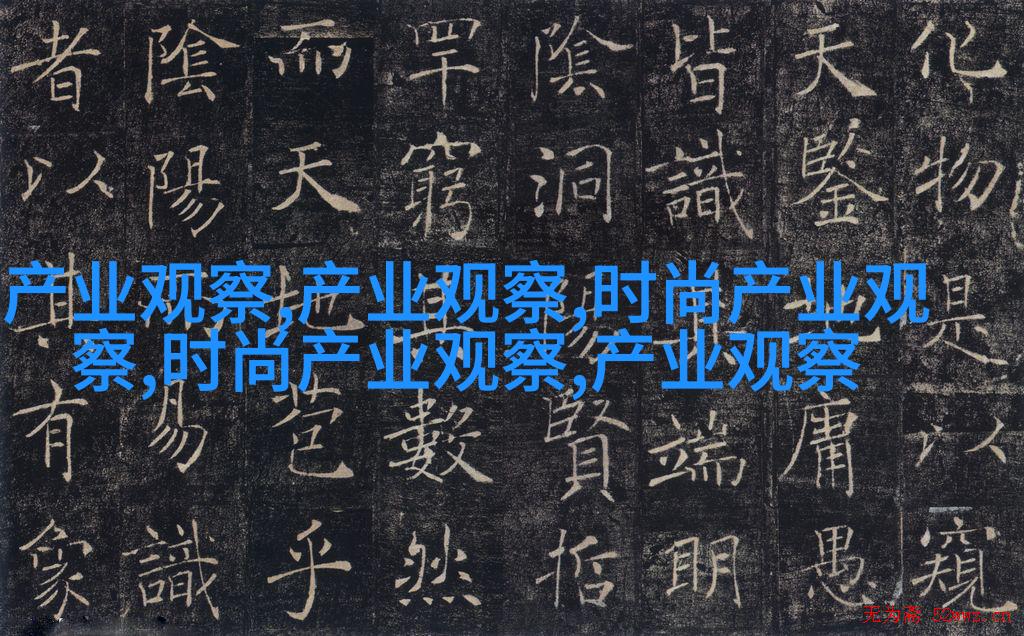 化物是以窺
天鑒地庸愚
皆識其端明
陰洞陽賢哲
罕窮其數然
而天地苞乎
陰陽而易識
者以其有象
产业观察,产业观察,时尚产业观
察,时尚产业观察,产业观察
无为斋 52wwz.cn